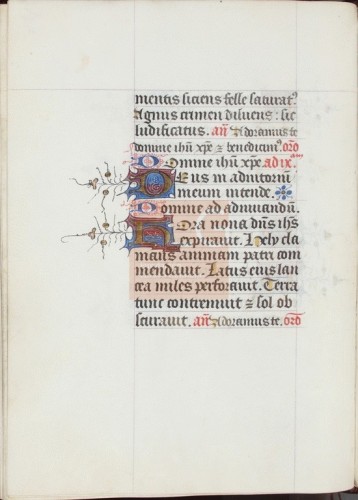 mentis siciens felle saturat⁹
Agnus crimen diluens: sic
ludificatus. an̄ Adoramus te
domine ihū xp̄e ⁊ benedicim⁹. or̄o
Domine ihū xp̄e. ad ix.am
Deus in adiutoriū
meum intende.
Domine ad adiuuandū.
Hora nona dn̄s ihs̄
expirauit. Hely cla
mans animam patri com
mendauit. Latus eius lan
cea miles perforauit. Terra
tunc contremuit ⁊ sol ob
scurauit. an̄ Adoramus te. or̄o